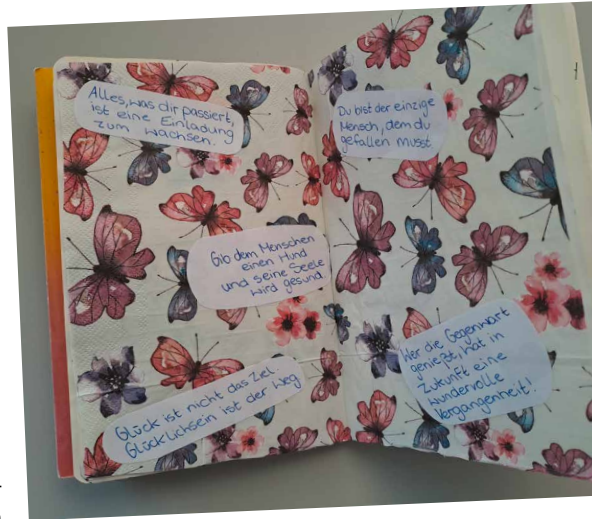 Alles, was dir passiert,
ist eine Einladung
zum wachsen.
Gib dem Menschen
einen Hund
und seine Seele
wird gesund.
Glück ist nicht das Ziel
Glücklichsein ist der Weg
Du bist der einzige
Mensch, dem du
gefallen musst
Wer die Gegenwart
genießt, hat in
Zukunft eine
wundervolle
Vergangenheit!